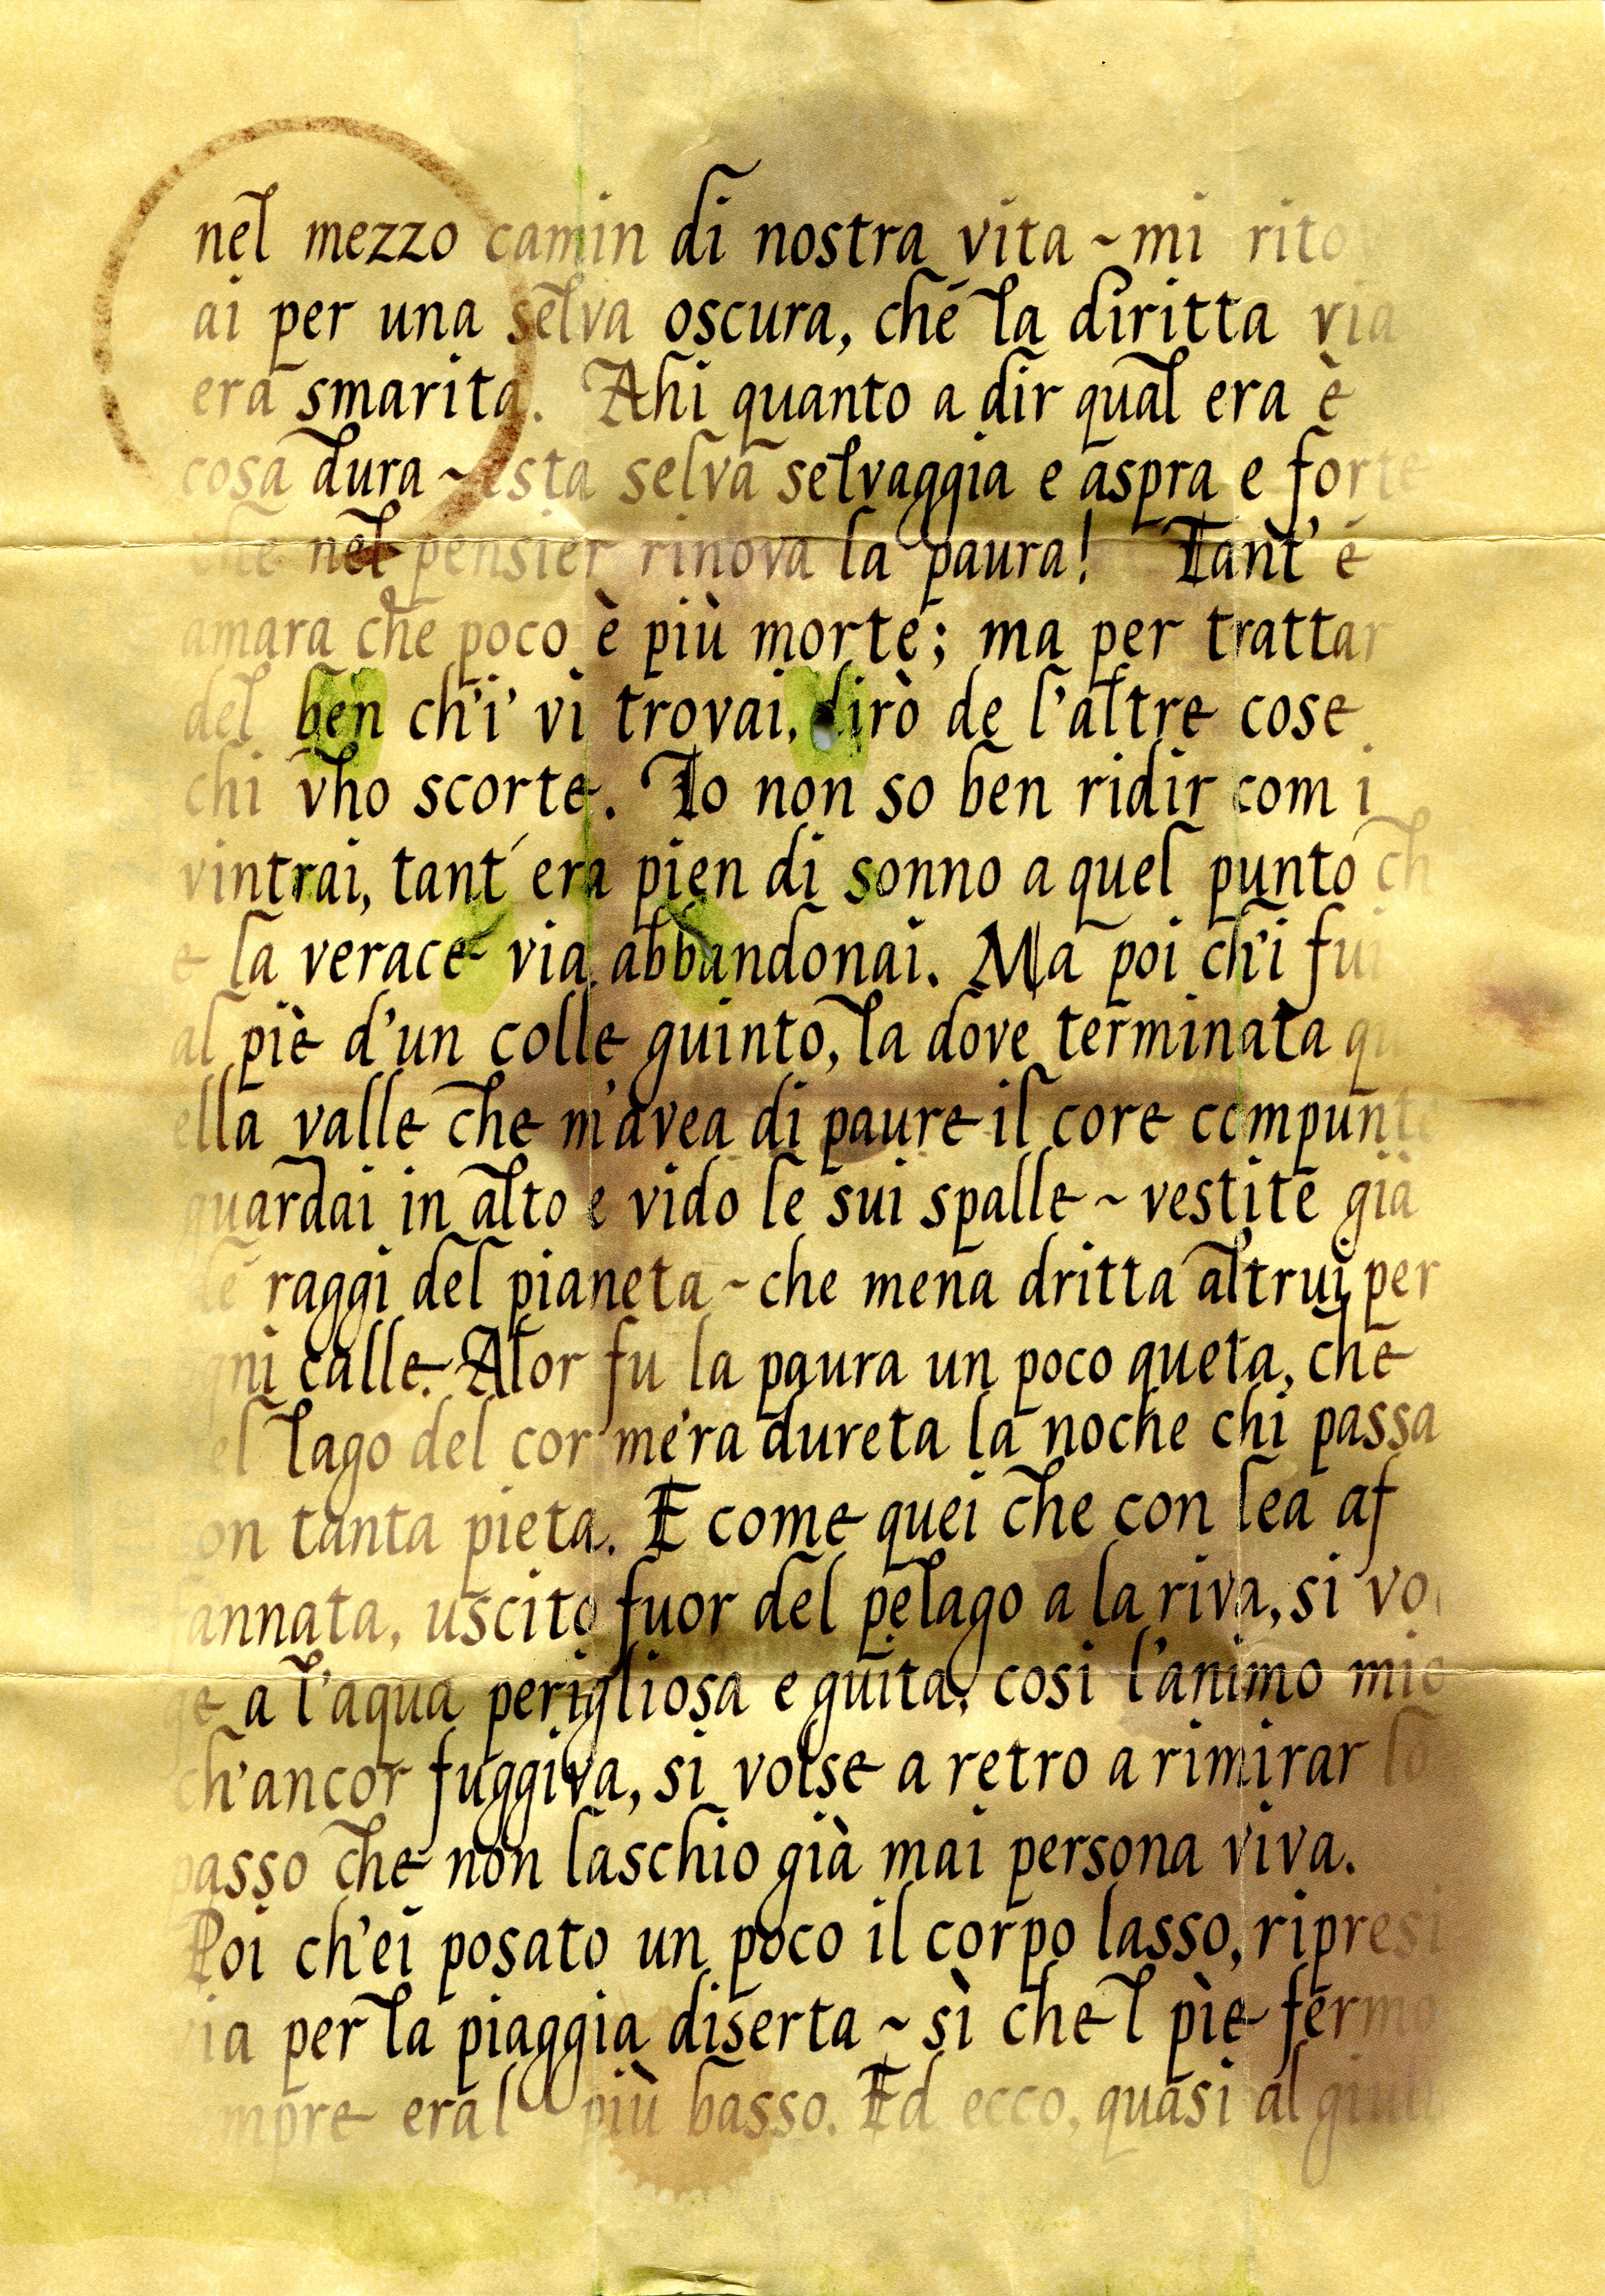 nel mezzo camin di nostra vita ~ mi rito
ai per una selva oscura, ché la diritta via
era smarita. Ahi quanto a dir qual era è
cosa dura ~ esta selva selvaggia e aspra e forte
che nel pensier rinova la paura! Tant' é
amara che poco è più morte; ma per trattar
del ben ch'i' vi trovai, dirò de l'altre cose
chi vho scorte. Io non so ben ridir com i
vintrai, tant' era pien di sonno a quel punto ch
e la verace via abbandonai. Ma poi ch'i fui
al piè d'un colle guinto, la dove terminata qu
ella valle che m'avea di paure il core compunto
guardai in alto e vido le sui spalle ~ vestite già
de raggi del pianeta ~ che mena dritta altrui per
ogni calle. Alor fu la paura un poco queta, che
el lago del cor m'era dureta la noche chi passa
on tanta pieta. E come quei che con lea af
fannata, uscito fuor del pelago a la riva, si vol
ge a l'aqua perigliosa e guita, cosi l'animo mio
ch'ancor fuggiva, si volse a retro a rimirar lo
passo che non laschio già mai persona viva.
Poi ch'ei posato un poco il corpo lasso, ripresi
via per la piaggia diserta ~ sì che l pìe fermo
mpre era l più basso. Ed ecco, quasi al